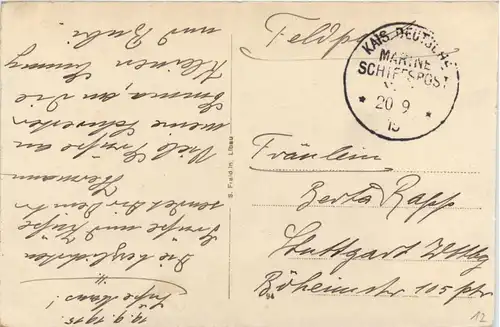 19.9.1915.
Die herzlichsten
Grüße und Küße
sendet Dir Dein Br
Hermann
Viele Grüße an
meine Schwester
Emma, an die
Kleinen Emmy
und Bubi
S. Freid.in. Libau
Feldpost
KAIS. DEUTSCHE
MARINE
SCHIFFSPOST
* 20 9 *
15
Fräulein
Berta Rapp
Stuttgart Wttbg
Böheimstr 105 ptr
94
12